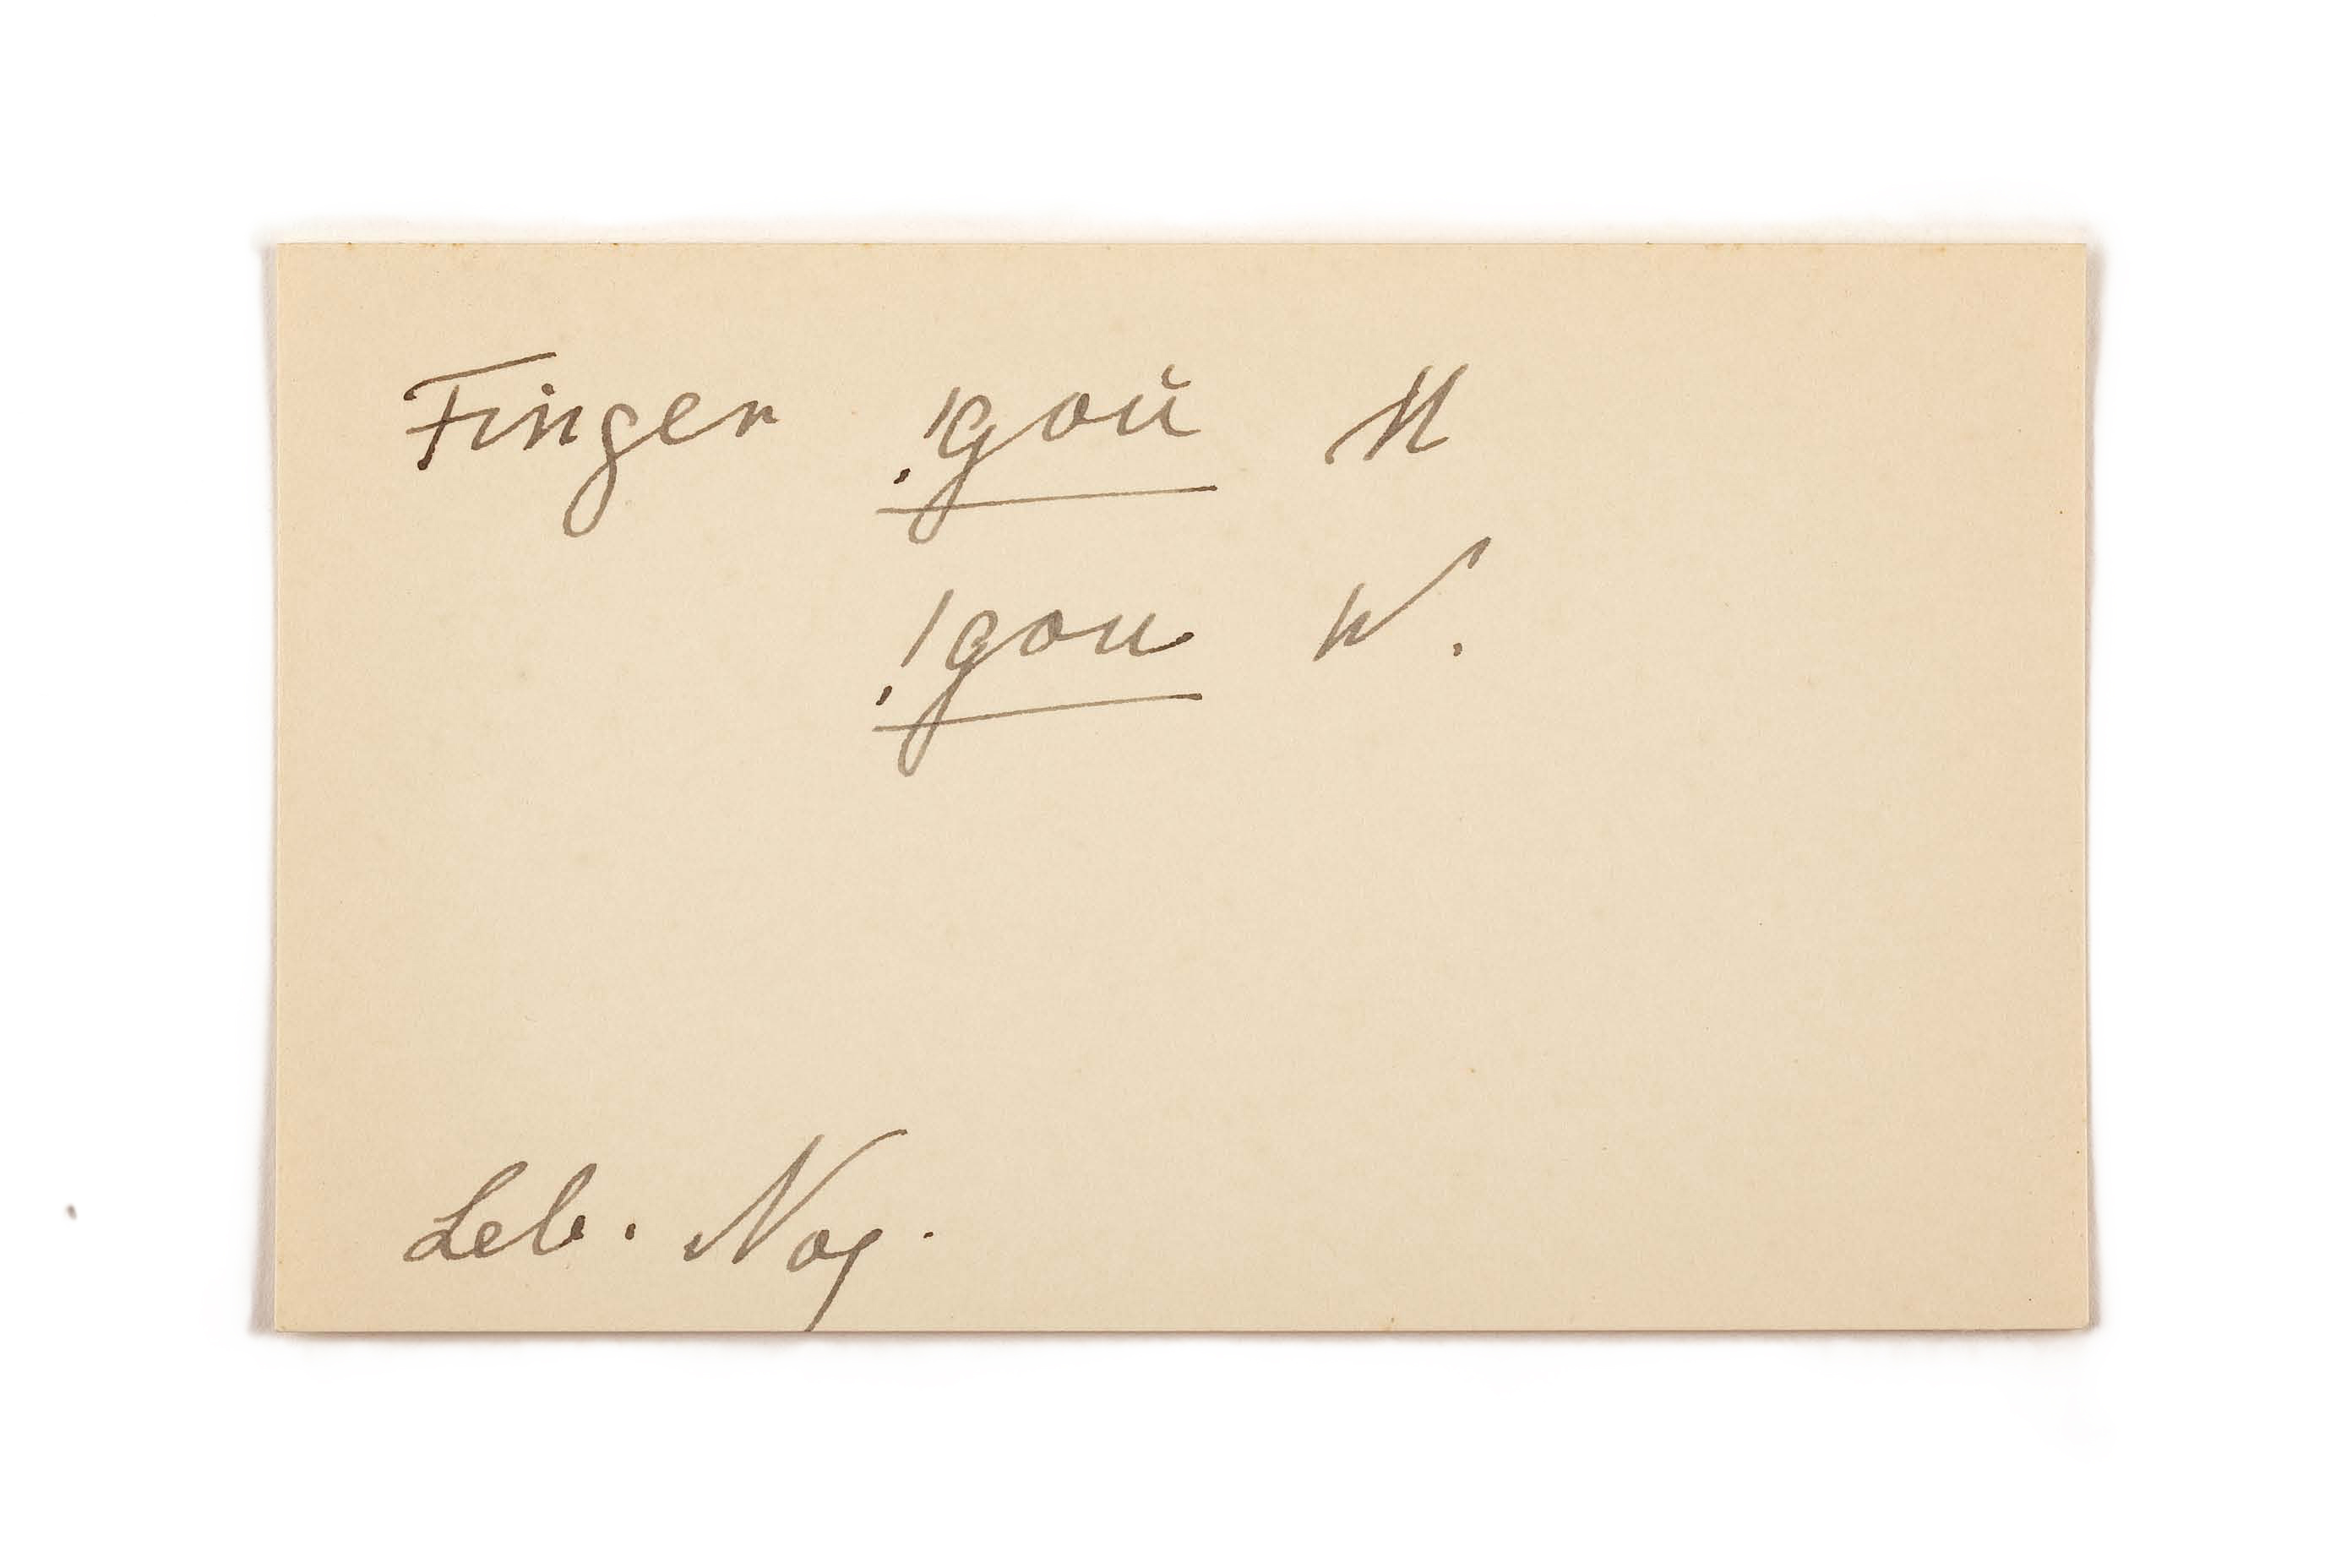 Finger ˌ/goŭ H
ˌ/gou W.
Leb. Nog.